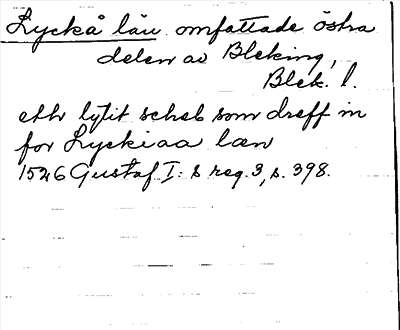 Lyckå län omfattade östra
delen av Bleking,
Blek. l.
eth lytit scheb som dreff in
for Lyckiaa læn
1526 Gustaf I: s reg. 3, s. 398.